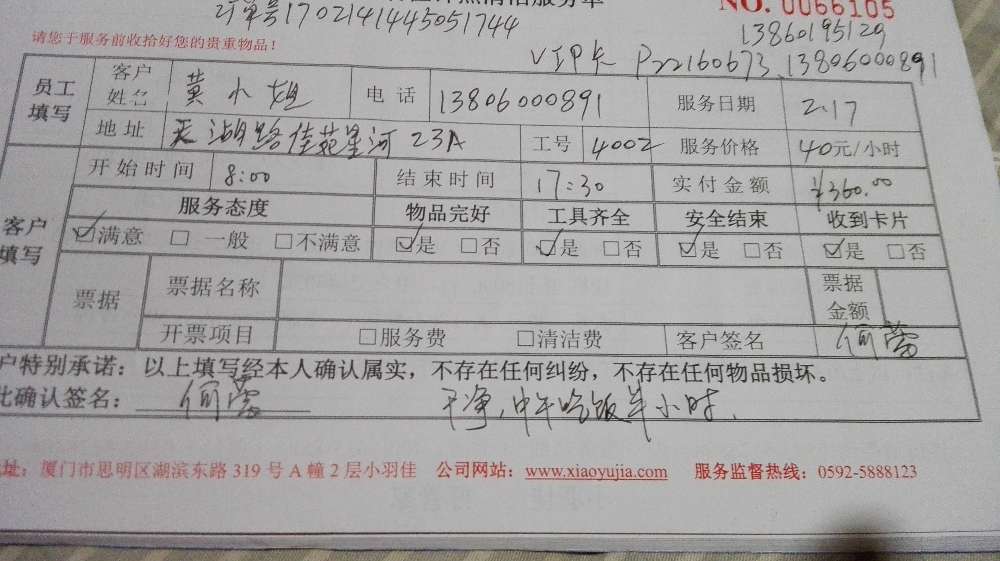 订单号1702141445051744
NO. 0066105
请您于服务前收拾好您的贵重物品！
13860195129
VIP卡 P22160673 13806000891
员工填写 客户姓名 黄小姐 电话 13806000891 服务日期 2.17
地址 天湖路佳苑星河23A 工号 4002 服务价格 40元/小时
客户填写 开始时间 8:00 结束时间 17:30 实付金额 ¥360.00
服务态度 物品完好 工具齐全 安全结束 收到卡片
☑满意 □一般 □不满意 ☑是 □否 ☑是 □否 ☑是 □否 ☑是 □否
票据 票据名称 票据金额
开票项目 □服务费 □清洁费 客户签名
户特别承诺：以上填写经本人确认属实，不存在任何纠纷，不存在任何物品损坏。
此确认签名： 干净，中午吃饭半小时.
址：厦门市思明区湖滨东路 319 号 A 幢 2 层小羽佳 公司网站：www.xiaoyujia.com 服务监督热线：0592-5888123